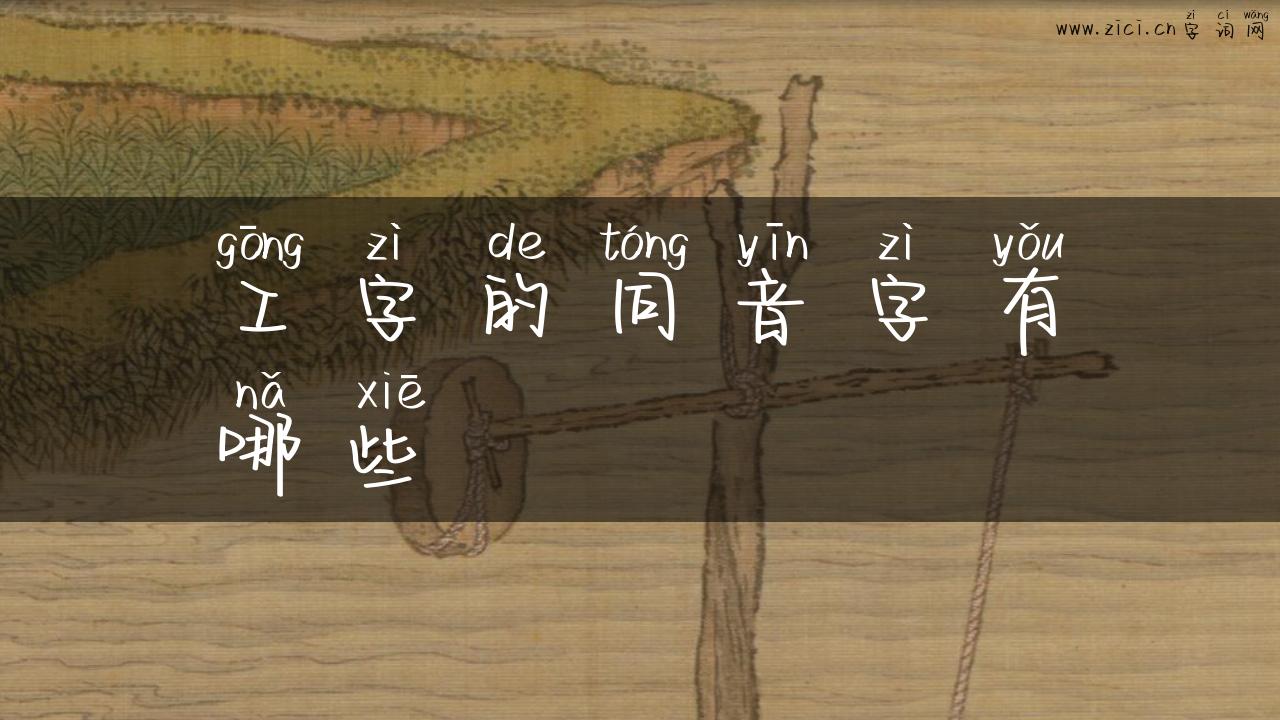 zì cí wǎng
www.zici.cn 字词网
gōng zì de tóng yīn zì yǒu
工字的同音字有
nǎ xiē
哪些